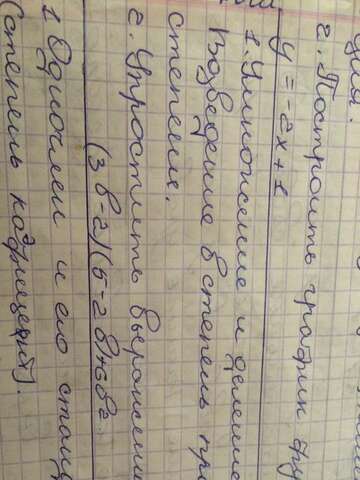 2. Построить график фу
y = -2x+1
1. Умножение и деление
Возведение в степень пр
степени.
2. Упростить выражение
(3в-2)(5-2в)+3в²
1 Одночлен и его станд
(степень кофициент).